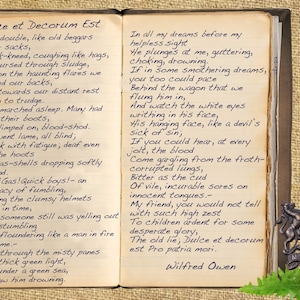 e et Decorum Est
double, like old beggars
sacks,
k-kneed, coughing like hags,
ursed through sludge,
n the haunting flares we
d our backs,
towards our distant rest
n to trudge.
marched asleep. Many had
their boots,
limped on, blood-shod.
ent lame, all blind;
k with fatigue; deaf even
he hoots
as-shells dropping softly
d.
Gas! Quick boys!- an
acy of fumbling,
ng the clumsy helmets
in time,
someone still was yelling out
stumbling
floundering like a man in fire
me.-
through the misty panes
thick green light,
under a green sea,
w him drowning.
In all my dreams before my
helpless sight
He plunges at me, guttering,
choking, drowning.
If in some smothering dreams,
you too could pace
Behind the wagon that we
flung him in,
And watch the white eyes
writhing in his face,
His hanging face, like a devil's
sick of sin,
If you could hear, at every
jolt, the blood
Come gargling from the froth-
corrupted lungs,
Bitter as the cud
Of vile, incurable sores on
innocent tongues,-
My friend, you would not tell
with such high zest
To children ardent for some
desperate glory,
The old lie; Dulce et decorum
est Pro patria mori.
Wilfred Owen